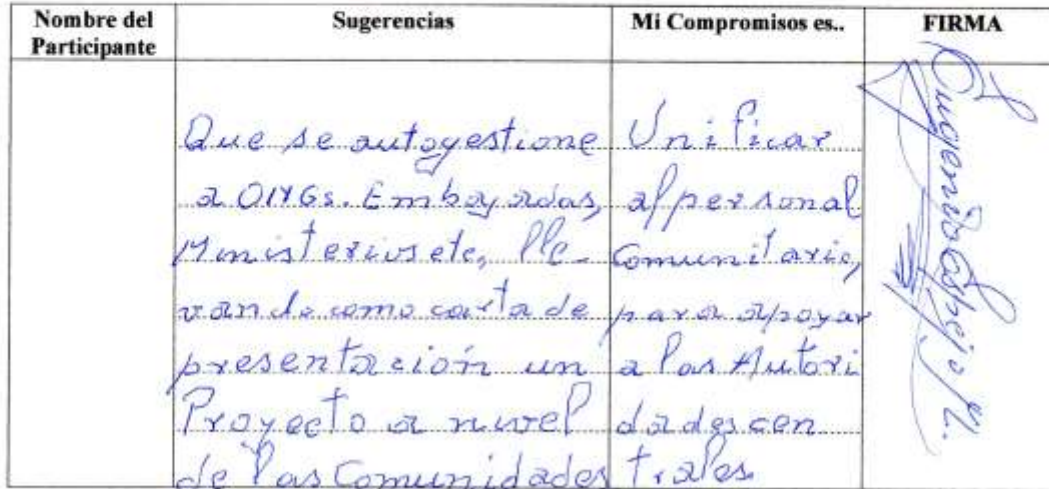 Nombre del Participante
Sugerencias
Mi Compromisos es..
FIRMA
Que se autogestione
a ONGs. Embajadas,
Ministerios etc, lle-
vando como carta de
presentación un
Proyecto a nivel
de las Comunidades
Unificar
al personal
Comunitario,
para apoyar
a las Autori
dades cen
trales
Eugenio Espejo M.